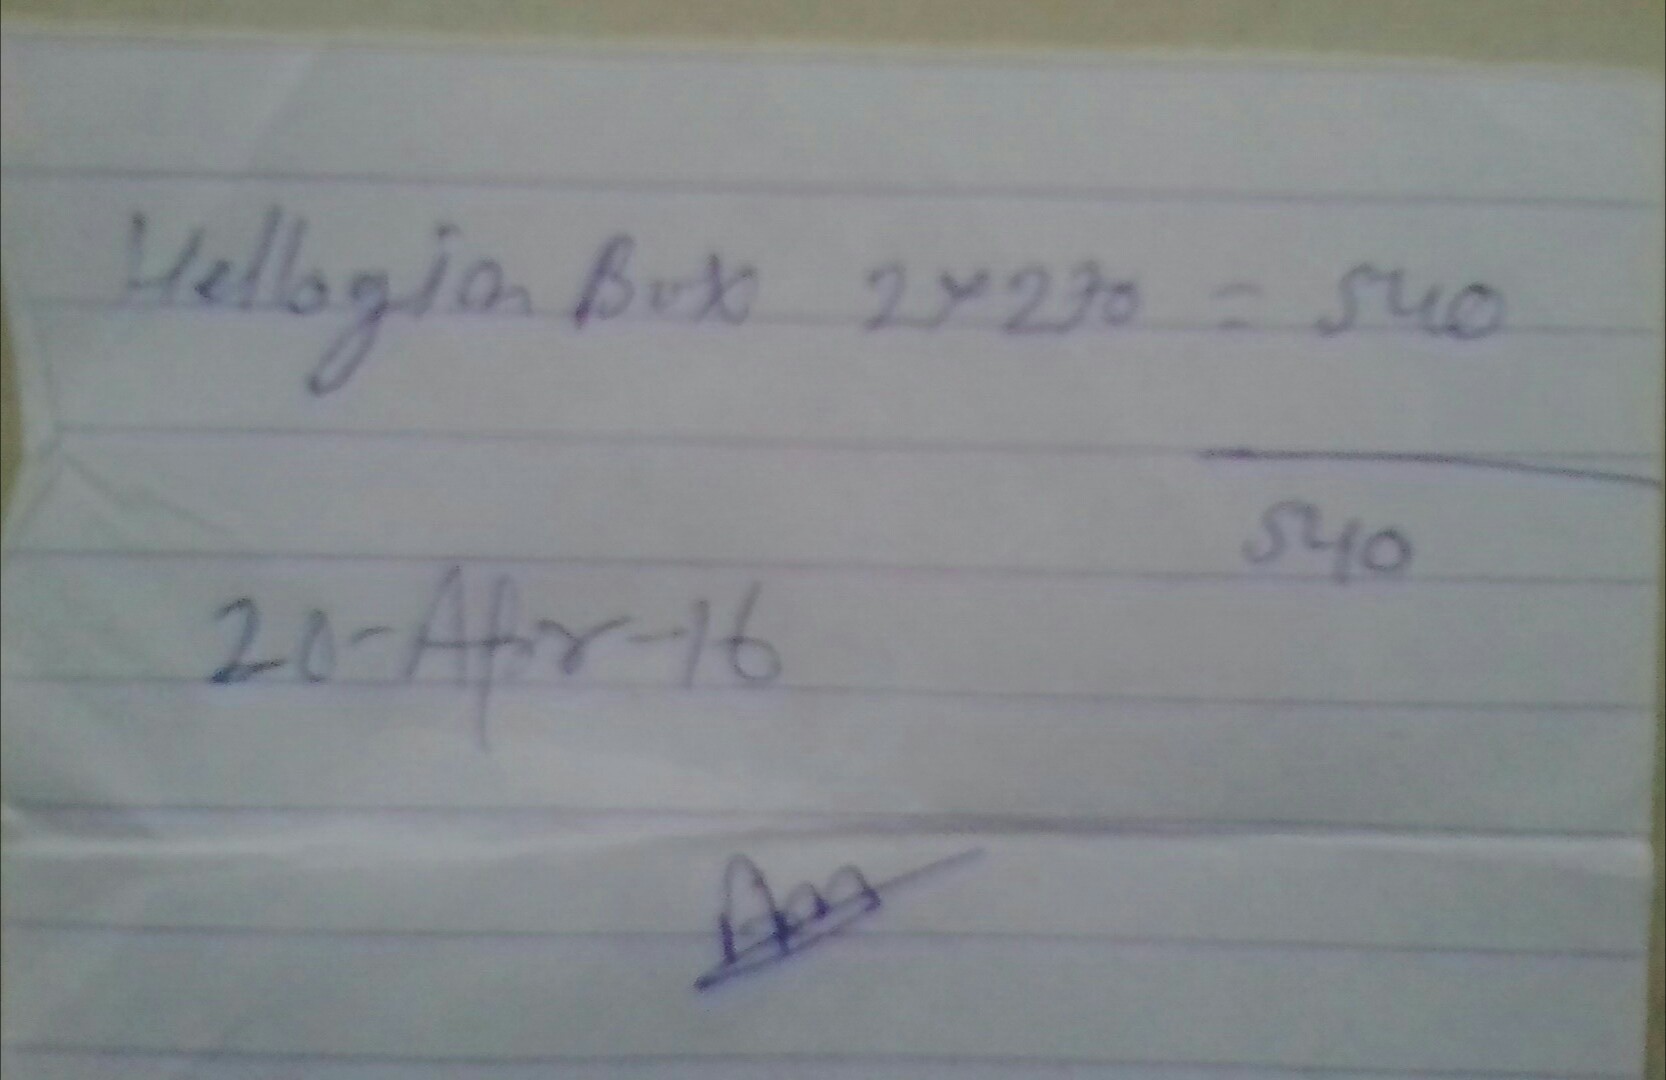 Hellogian Box 2×270 = 540
540
20-Apr-16